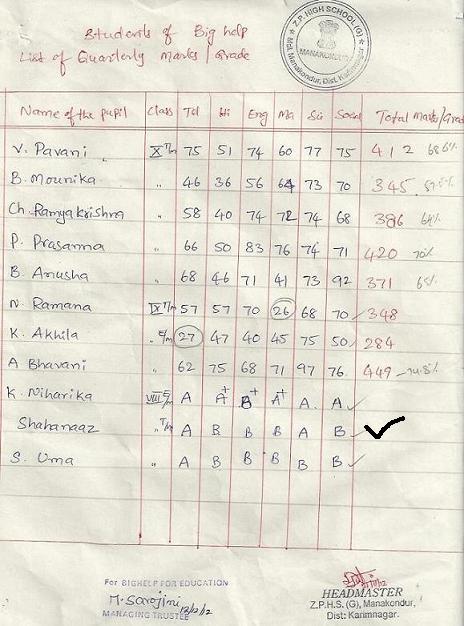 Students of Big help
List of Quarterly Marks / Grade
Z.P. HIGH SCHOOL (G)
MANAKONDUR
Mdl. Manakondur, Dist. Karimnagar.
Name of the pupil Class Tel Hi Eng Ma Sci Social Total Marks/Grade
V. Pavani X T/m 75 51 74 60 77 75 412 68.6%
B. Mounika " 46 36 56 64 73 70 345
Ch. Ramyakrishna " 58 40 74 72 74 68 386 64%
P. Prasanna " 66 50 83 76 74 71 420 70%
B. Anusha " 68 46 71 41 73 92 371 65%
N. Ramana IX T/m 57 57 70 26 68 70 348
K. Akhila " E/m 27 47 40 45 75 50 284
A Bhavani " 62 75 68 71 97 76 449 74.8%
K. Niharika VIII E/m A A+ B+ A+ A A ✓
Shahanaaz " T/m A B B B A B ✓
S. Uma " A B B B B B ✓
For BIGHELP FOR EDUCATION
M. Sarojini 12/2/12
MANAGING TRUSTEE
HEADMASTER
Z.P.H.S. (G), Manakondur,
Dist: Karimnagar.